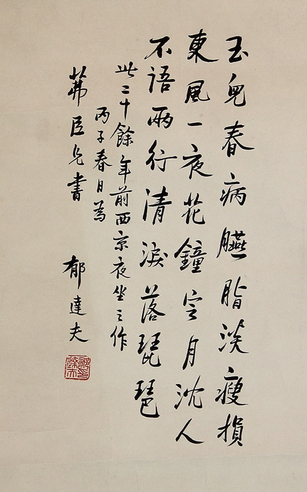 玉兒春病臙脂淡瘦損
東風一夜花鐘定月沈人
不語兩行清淚落琵琶
此二十餘年前西京夜坐之作
丙子春日為
茀臣兄書
郁達夫